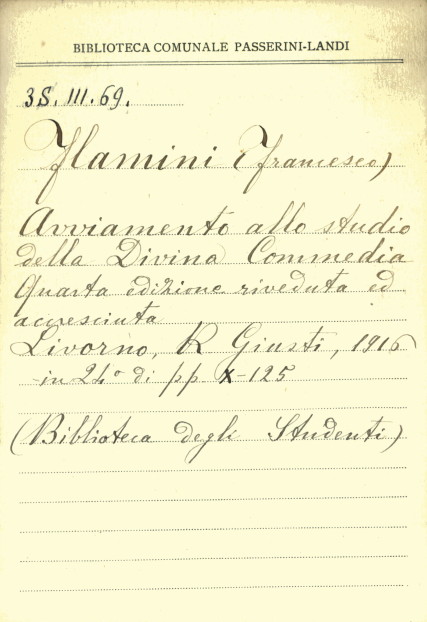 BIBLIOTECA COMUNALE PASSERINI-LANDI
3S. III. 69.
Flamini (Francesco)
Avviamento allo studio
della Divina Commedia
Quarta edizione riveduta ed
accresciuta
Livorno, R Giusti, 1916
in 24° di pp X-125
(Biblioteca degli Studenti)